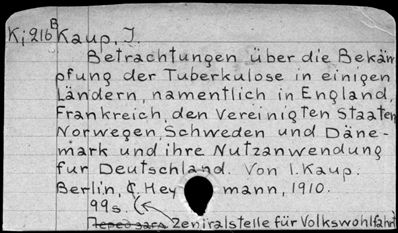 Ki216B Kaup, I.
Betrachtungen über die Bekäm
pfung der Tuberkulose in einigen
Ländern, namentlich in England,
Frankreich, den Vereinigten Staaten
Norwegen, Schweden und Däne-
mark und ihre Nutzanwendung
fur Deutschland. Von I. Kaup.
Berlin, C. Hey mann, 1910.
99s.
Zentralstelle für Volkswohlfahrt